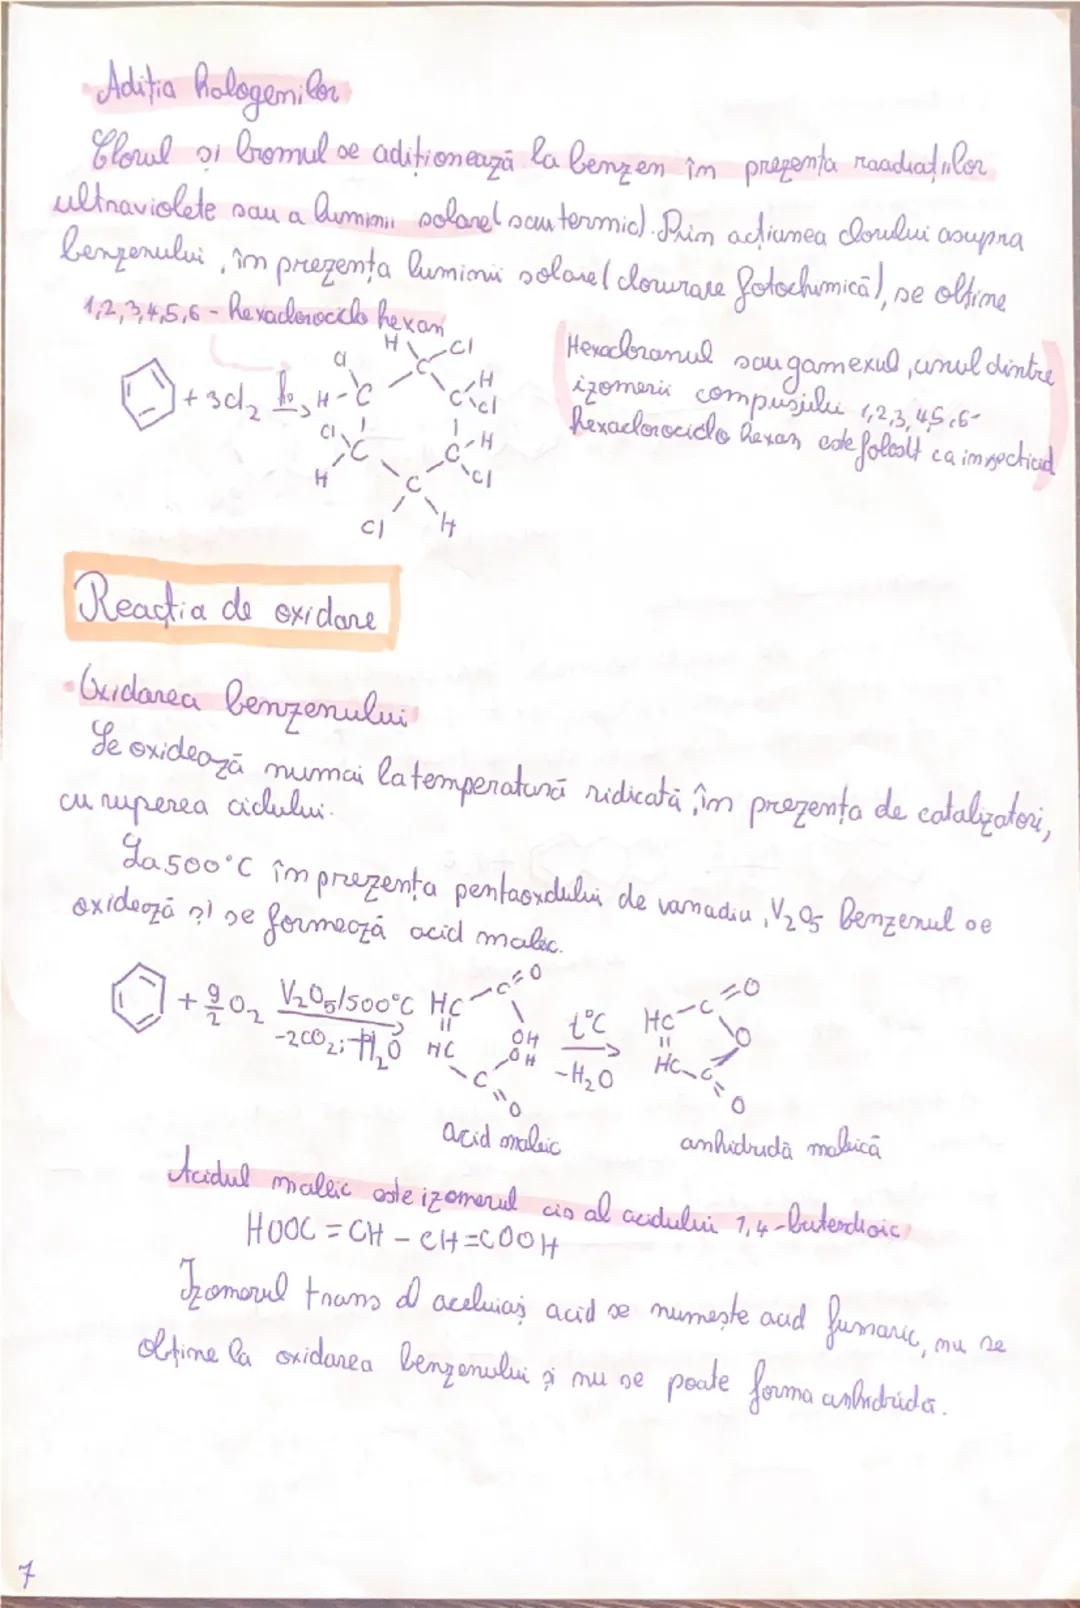 Adiția halogenilor
Clorul și bromul se adiționează la benzen în prezența raadiațiilor
ultraviolete sau a luminii solare (sau termic). Prin acțiunea clorului asupra
benzenului, în prezența luminii solare (clorurare fotochimică), se obține
1,2,3,4,5,6 - hexaclorociclo hexan
Hexacloranul sau gamexul, unul dintre
izomerii compusului 1,2,3,4,5,6-
hexaclorociclo hexan este folosit ca insecticid
+ 3Cl2 hν
H Cl
Cl C H
H - C C Cl
Cl C C H
H C Cl
Cl H
Reacția de oxidare
Oxidarea benzenului
Se oxidează numai la temperatură ridicată, în prezența de catalizatori,
cu ruperea ciclului.
La 500°C în prezența pentaoxdului de vanadiu, V2O5 benzenul se
oxidează și se formează acid maleic.
+ 9/2 O2 V2O5/500°C
-2CO2; -H2O
HC - C = O
OH
HC OH
C = O
t°C
-H2O
HC - C = O
O
HC - C = O
acid maleic anhidrudă maleică
Acidul maleic este izomerul cis al acidului 1,4-butendioic
HOOC = CH - CH = COOH
Izomerul trans al aceluiaș acid se numește acid fumaric, nu se
obține la oxidarea benzenului și nu se poate forma anhidrida.
7